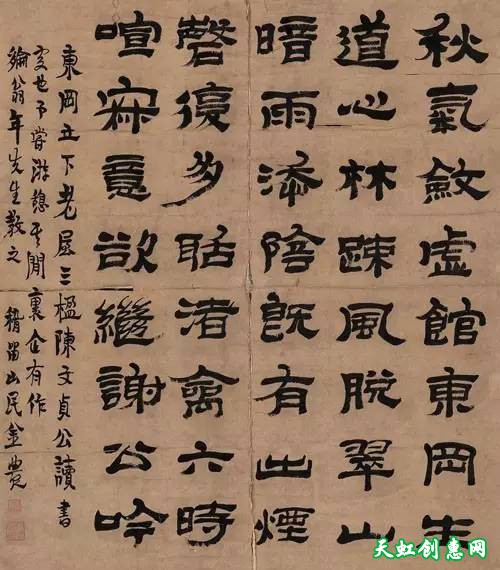 秋氣斂虛館東岡生
道心林疎風脫翠山
暗雨添陰既有出煙
磬復多聒渚禽六時
喧寂意欲繼謝公吟
東岡之下老屋三楹陳文貞公讀書
處也予嘗游憩其間褱企有作
綸翁年先生教之 稽留山民金農
天虹创意网